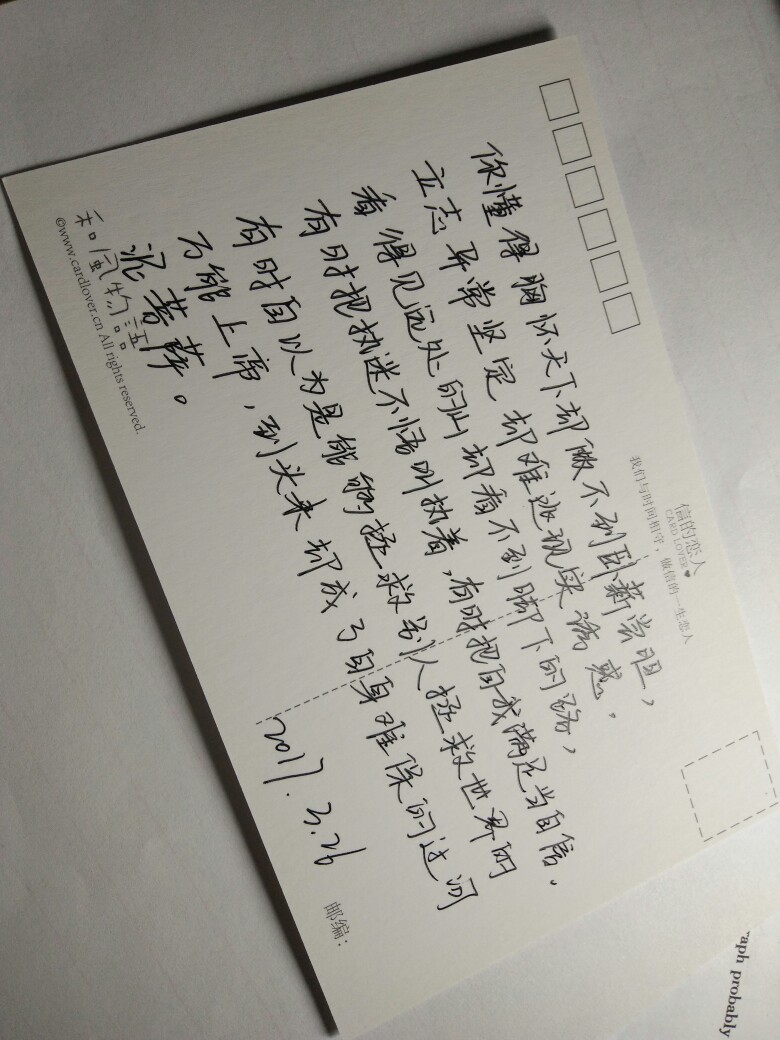 你懂得胸怀天下却做不到卧薪尝胆，
立志异常坚定 却难逃现实诱惑。
看得见远处的山却看不到脚下的路，
有时把执迷不悟叫执着，有时把自我满足当自信。
有时自以为是能够拯救别人拯救世界的
万能上帝，到头来却成了自身难保的过河
泥菩萨。
2017.3.26
信的恋人
CARD LOVER♥
我们与时间相守，做信的一生恋人
邮编：
和风物语
©www.cardlover.cn All rights reserved.
aph probably